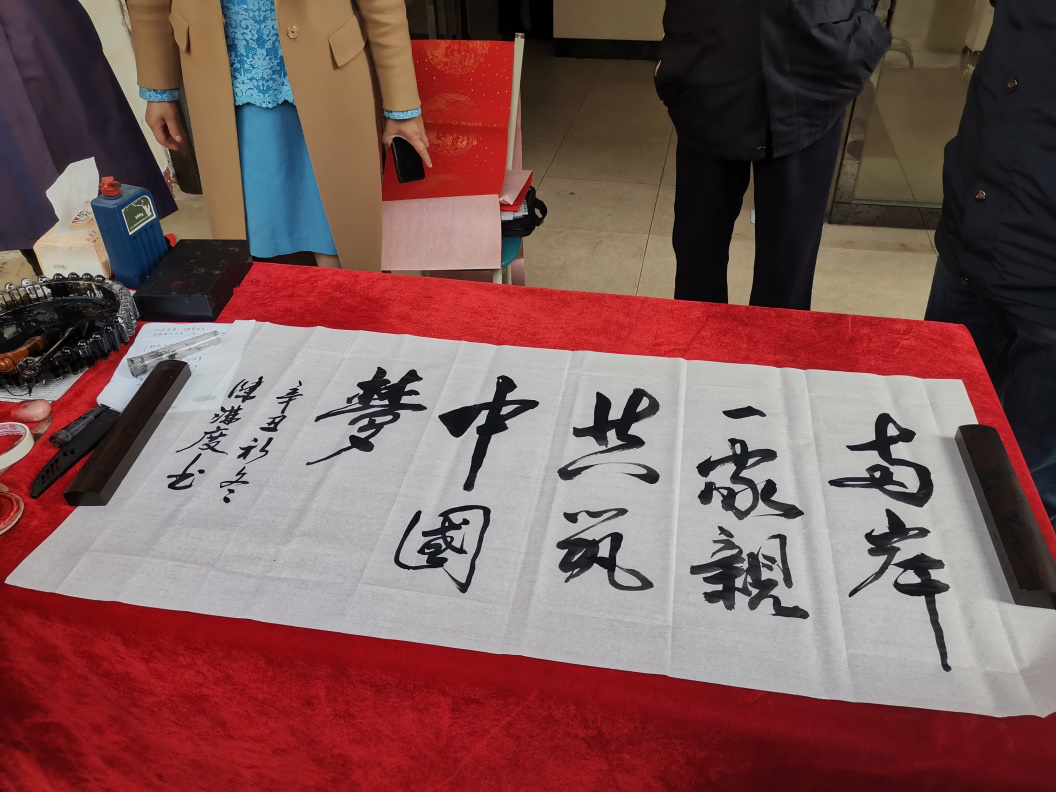 两岸
一家親
共筑
中國
夢
辛丑初冬
陳度书